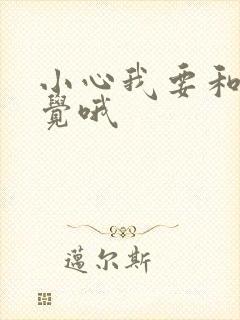 小心我要和
觉哦
邁尔斯